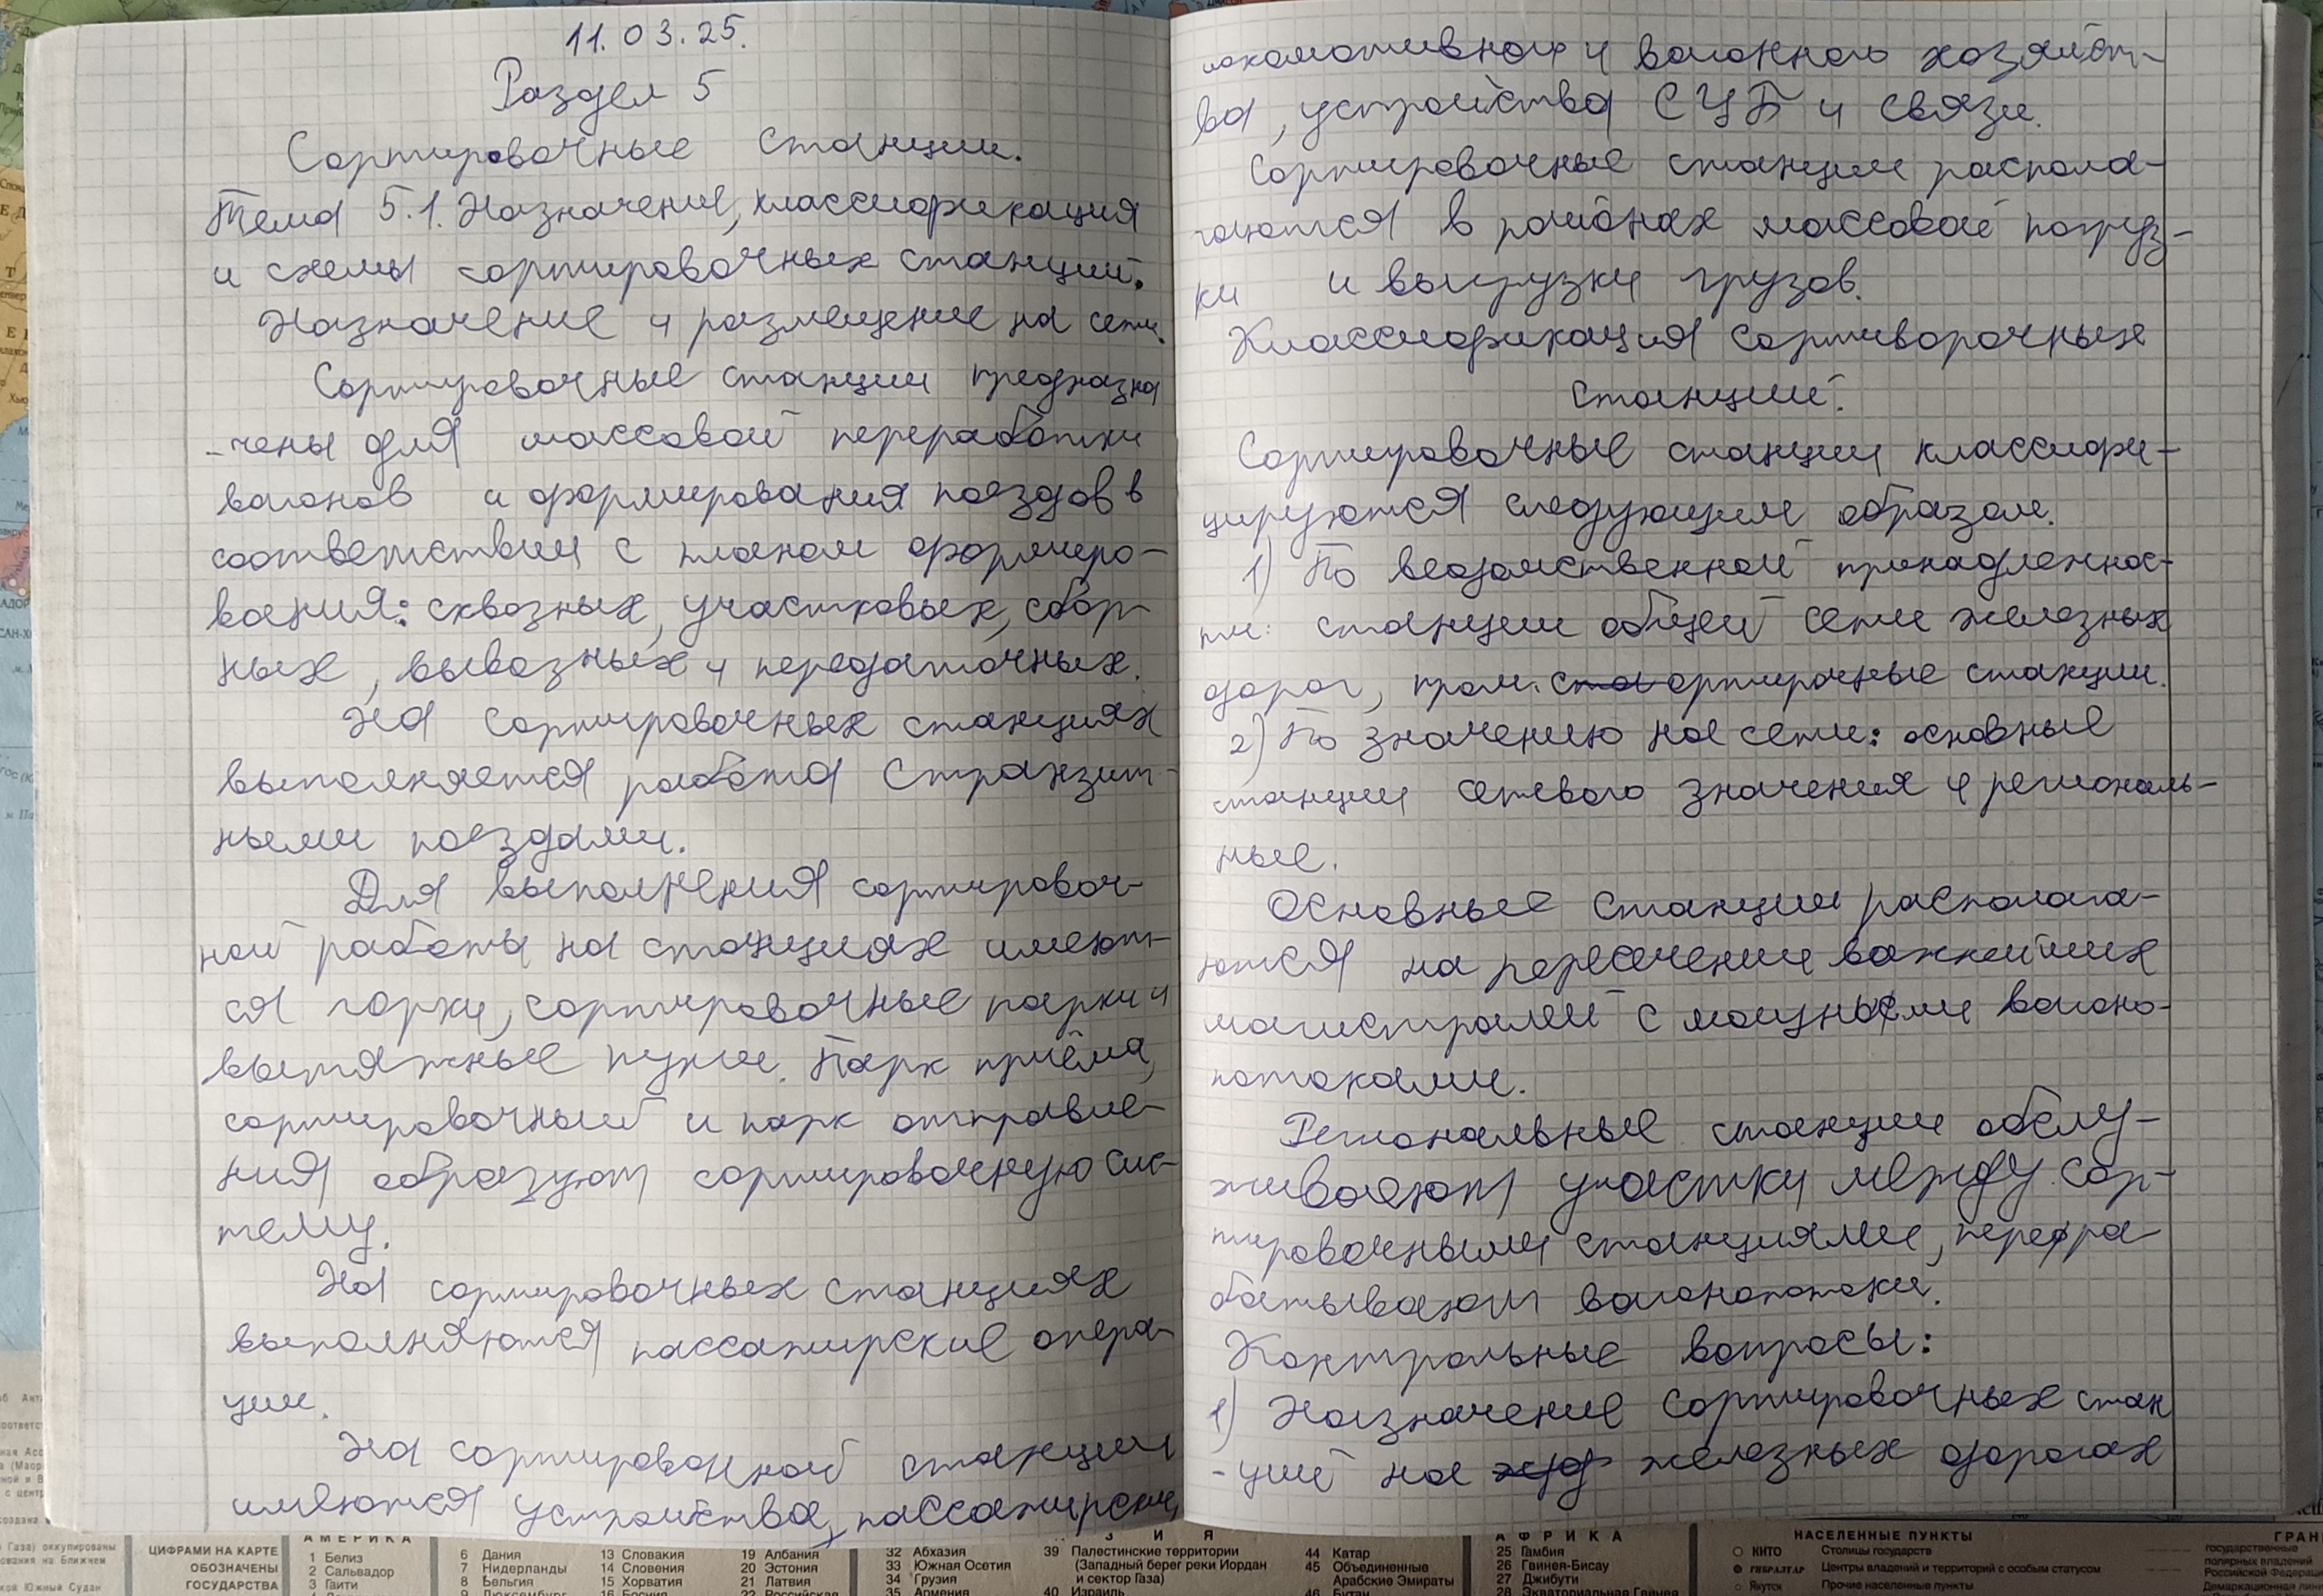 11.03.25.
Раздел 5
Сортировочные станции.
Тема 5.1. Назначение, классификация
и схемы сортировочных станций.
Назначение и размещение на сети.
Сортировочные станции предназна
-чены для массовой переработки
вагонов и формирования поездов в
соответствии с планом формиро-
вания: сквозных, участковых, сбор-
ных, вывозных и передаточных.
На сортировочных станциях
выполняется работа с транзит-
ными поездами.
Для выполнения сортировоч-
ной работы на станциях имеют-
ся горки, сортировочные парки и
вытяжные пути. Парк приёма,
сортировочный и парк отправле-
ния образуют сортировочную сис-
тему.
На сортировочных станциях
выполняются пассажирские опера-
ции.
На сортировочной станции
имеются устройства, пассажирские,
локомотивного и вагонного хозяйст-
ва, устройства СЦБ и связи.
Сортировочные станции распола-
гаются в районах массовой погруз-
ки и выгрузки грузов.
Классификация сортиворочных
станций.
Сортировочные станции классифи-
цируются следующим образом.
1) По ведомственной принадлежнос-
ти: станции общей сети железных
дорог, пром. сортирочные станции.
2) По значению на сети: основные
станции сетевого значения и региональ-
ные.
Основные станции располага-
ются на пересечении важнейших
магистралей с мощными вагоно-
потоками.
Региональные станции обслу-
живают участки между сор-
тировочными станциями, перера
батывают вагонопотоки.
Контрольные вопросы:
1) Назначение сортировочных стан
-ций на железных дорогах
АМЕРИКА
ЦИФРАМИ НА КАРТЕ
ОБОЗНАЧЕНЫ
ГОСУДАРСТВА
1 Белиз
2 Сальвадор
3 Гаити
6 Дания
7 Нидерланды
8 Бельгия
9 Люксембург
13 Словакия
14 Словения
15 Хорватия
19 Албания
20 Эстония
21 Латвия
32 Абхазия
33 Южная Осетия
34 Грузия
35 Армения
39 Палестинские территории
(Западный берег реки Иордан
и сектор Газа)
40 Израиль
44 Катар
45 Объединенные
Арабские Эмираты
АФРИКА
25 Гамбия
26 Гвинея-Бисау
27 Джибути
28 Экваториальная Гвинея
НАСЕЛЕННЫЕ ПУНКТЫ
КИТО Столицы государств
ГИБРАЛТАР Центры владений и территорий с особым статусом
Якутск Прочие населенные пункты